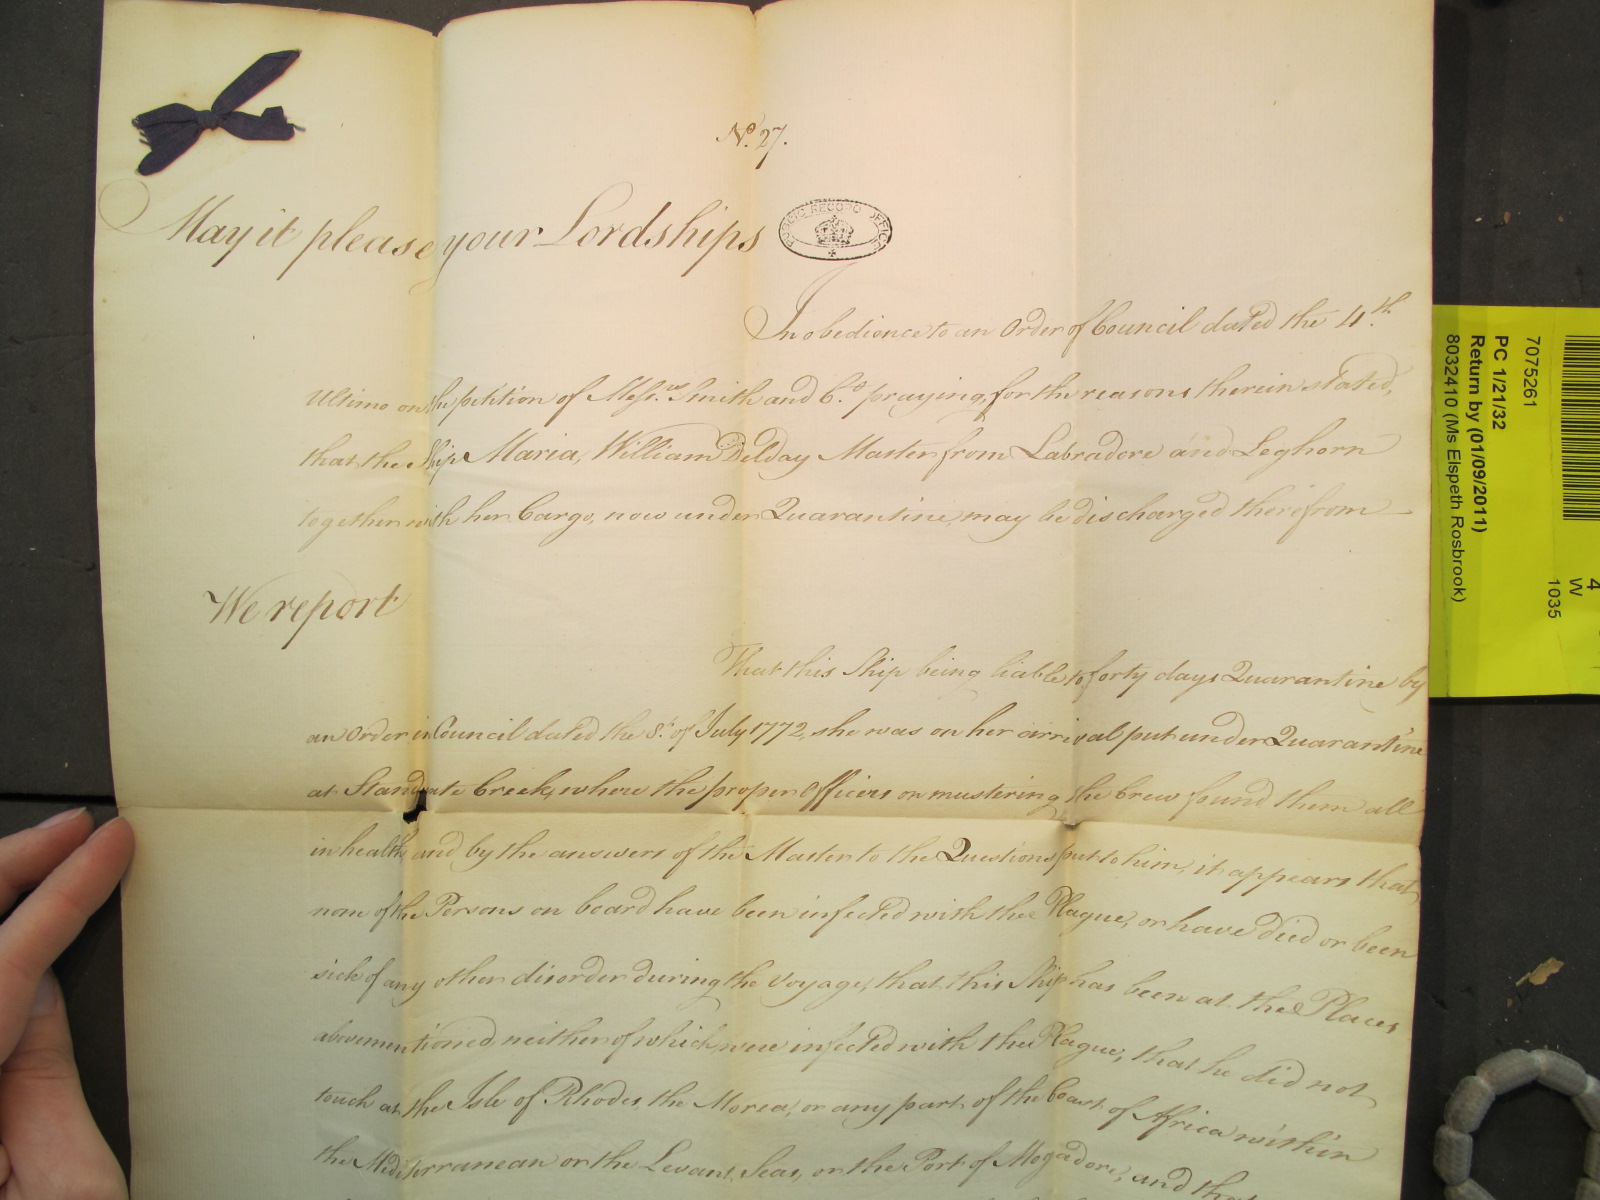 No. 27.
May it please your Lordships
PUBLIC RECORD OFFICE
In obedience to an Order of Council dated the 4th.
Ultimo on the petition of Messrs. Smith and Co. praying, for the reasons therein stated,
that the Ship Maria, William Delday Master from Labradore and Leghorn
together with her Cargo, now under Quarantine, may be discharged therefrom
We report
That this Ship being liable to forty days Quarantine by
an Order in Council dated the 8th. of July 1772, she was on her arrival put under Quarantine
at Standgate Creek, where the proper Officers on mustering the Crew found them all
in health, and by the answers of the Master to the Questions put to him, it appears that
none of the Persons on board have been infected with the Plague, or have died or been
sick of any other disorder during the Voyage, that this Ship has been at the Places
abovementioned, neither of which were infected with the Plague, that he did not
touch at the Isle of Rhodes, the Morea, or any part of the Coast of Africa within
the Mediterranean or the Levant Seas, or the Port of Mogadore, and that
7075261
PC 1/21/32
Return by (01/09/2011)
8032410 (Ms Elspeth Rosbrook)
4
W
1035